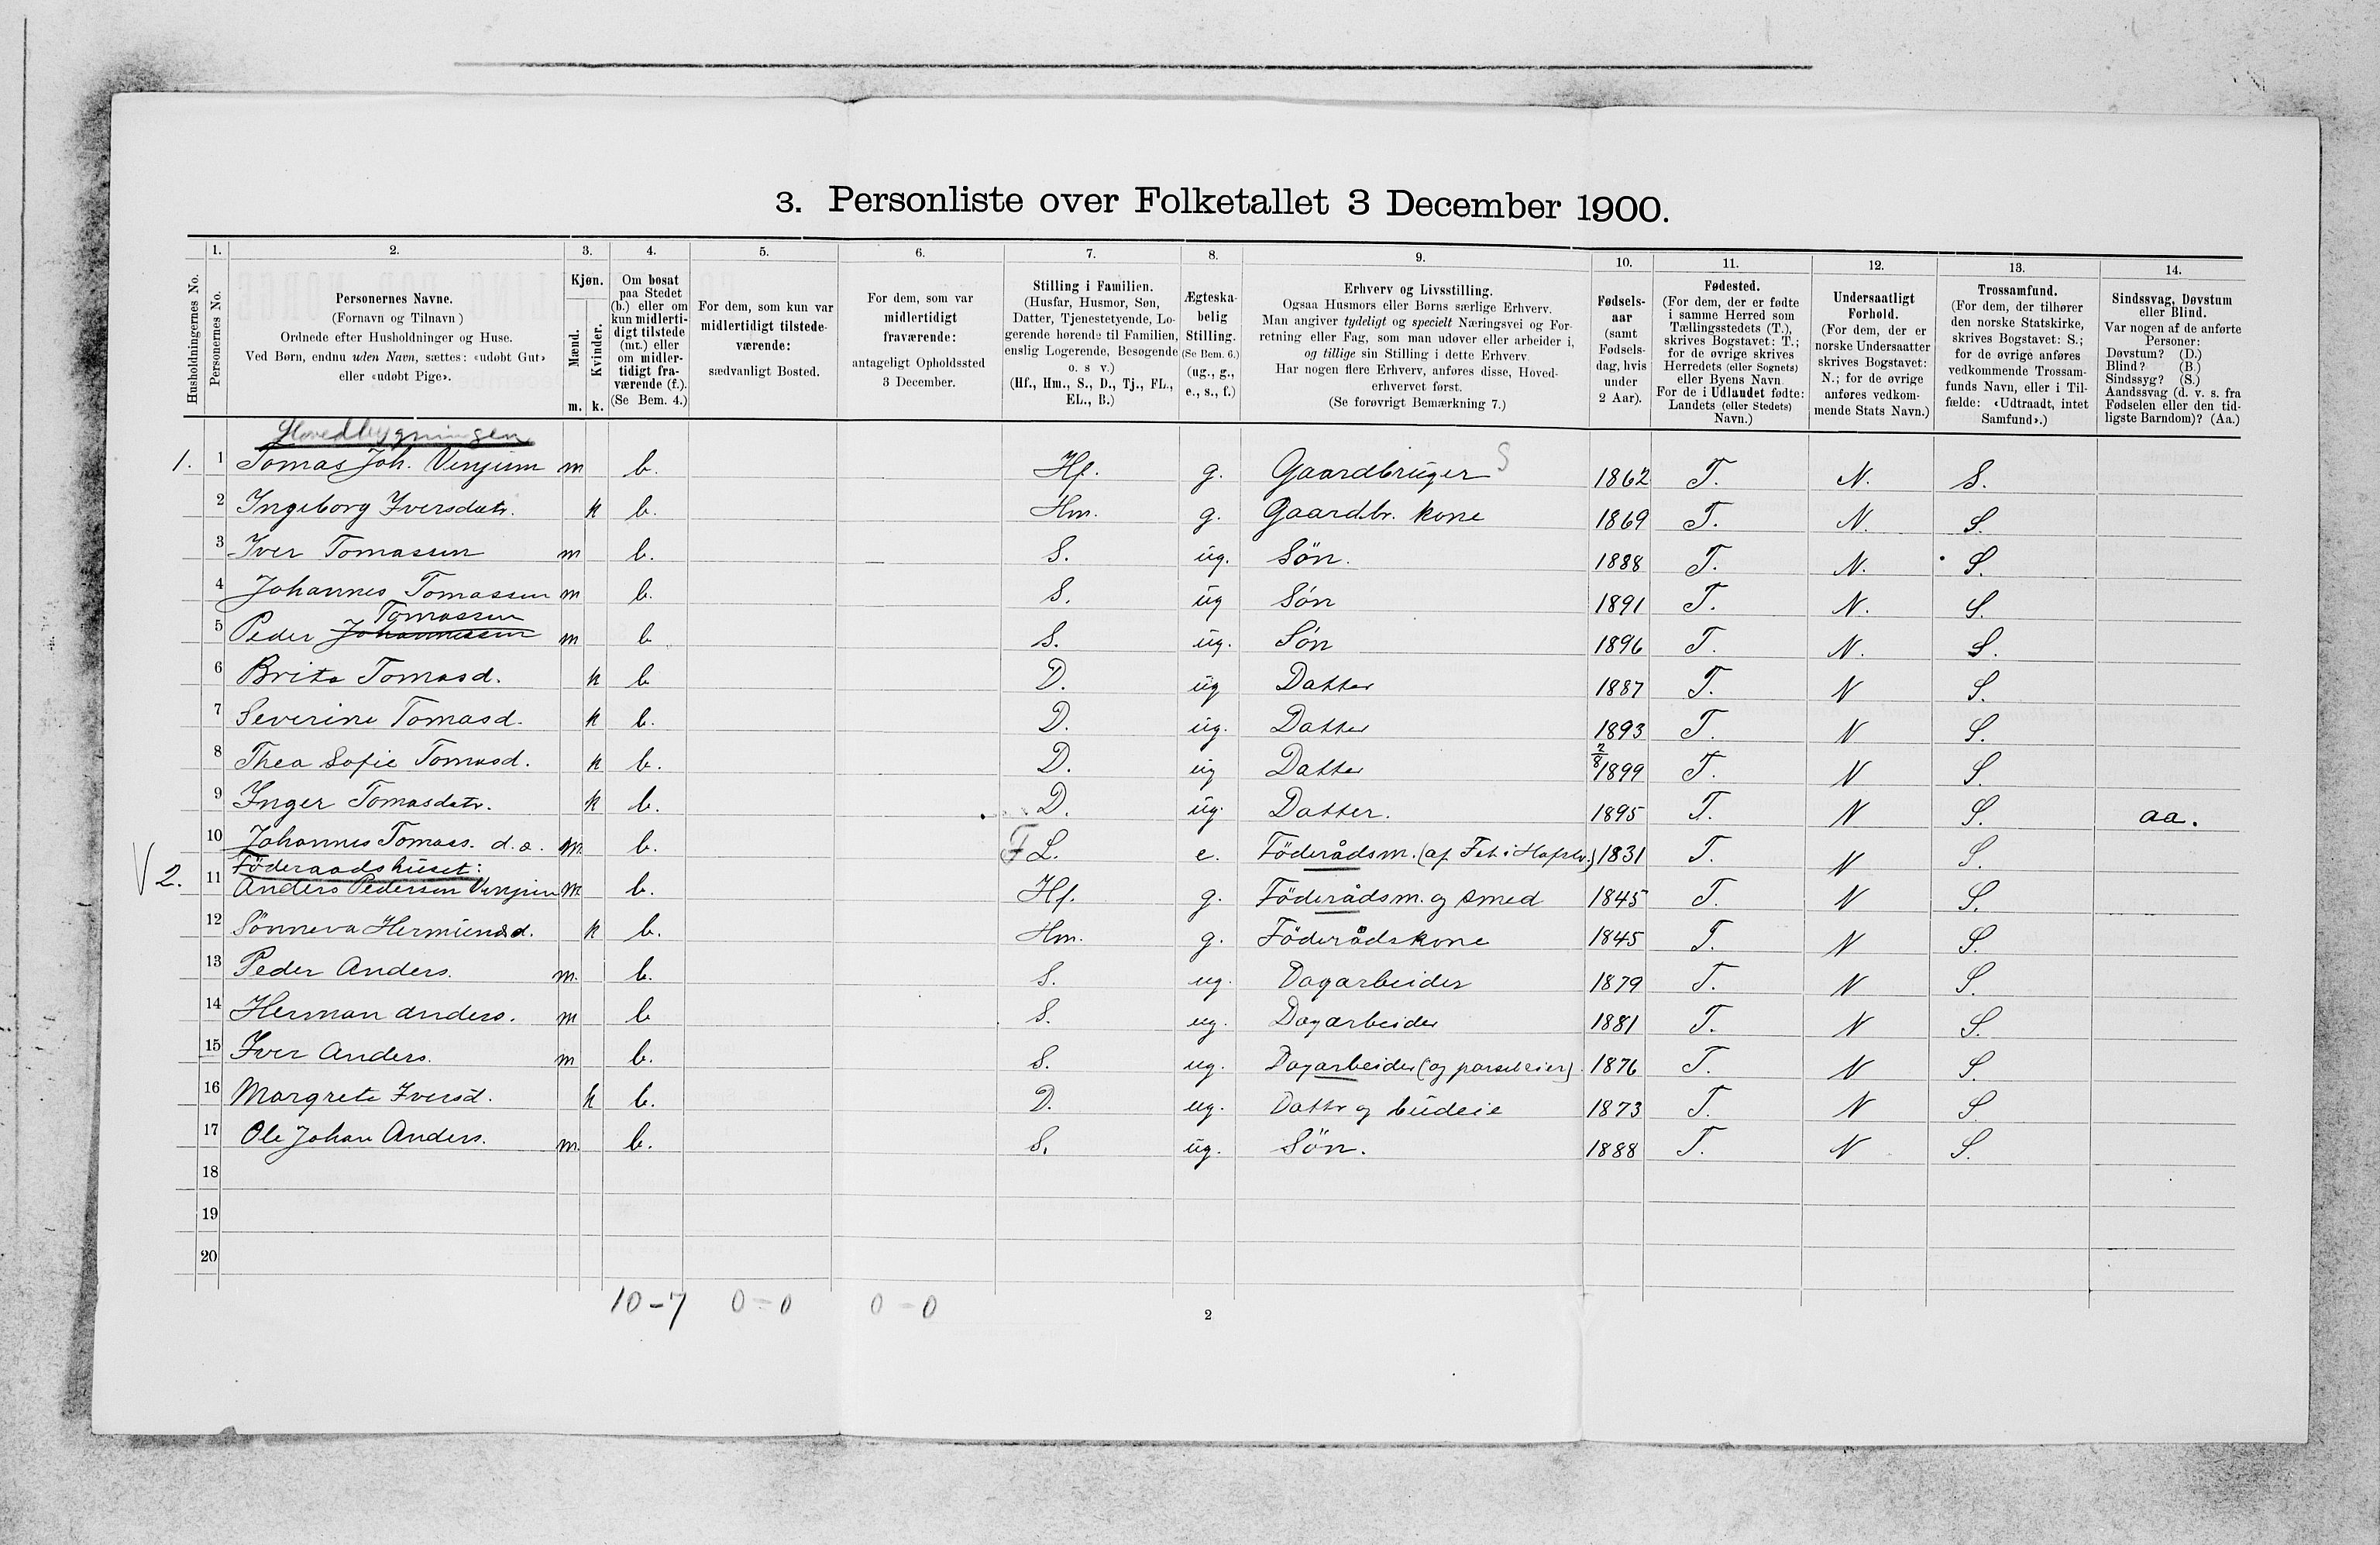 3. Personliste over Folketallet 3 December 1900.
1. 2. 3. 4. 5. 6. 7. 8. 9. 10. 11. 12. 13. 14.
Husholdningernes No.
Personernes No.
Personernes Navne.
(Fornavn og Tilnavn)
Ordnede efter Husholdninger og Huse.
Ved Børn, endnu uden Navn, sættes: «udøbt Gut»
eller «udøbt Pige».
Kjøn.
Mænd.
Kvinder.
m. k.
Om bosat
paa Stedet
(b.) eller om
kun midlerti-
digt tilstede
(mt.) eller
om midler-
tidigt fra-
værende (f.).
(Se Bem. 4.)
For dem, som kun var
midlertidigt tilstede-
værende:
sædvanligt Bosted.
For dem, som var
midlertidigt
fraværende:
antageligt Opholdssted
3 December.
Stilling i Familien.
(Husfar, Husmor, Søn,
Datter, Tjenestetyende, Lo-
gerende hørende til Familien,
enslig Logerende, Besøgende
o. s v.)
(Hf., Hm., S., D., Tj., FL.,
EL., B.)
Ægteska-
belig
Stilling.
(Se Bem. 6.)
(ug., g.,
e., s., f.)
Erhverv og Livsstilling.
Ogsaa Husmors eller Børns særlige Erhverv.
Man angiver tydeligt og specielt Næringsvei og For-
retning eller Fag, som man udøver eller arbeider i,
og tillige sin Stilling i dette Erhverv.
Har nogen flere Erhverv, anføres disse, Hoved-
erhvervet først.
(Se forøvrigt Bemærkning 7.)
Fødsels-
aar
(samt
Fødsels-
dag, hvis
under
2 Aar).
Fødested.
(For dem, der er fødte
i samme Herred som
Tællingsstedets (T.),
skrives Bogstavet: T.;
for de øvrige skrives
Herredets (eller Sognets)
eller Byens Navn.
For de i Udlandet fødte:
Landets (eller Stedets)
Navn.)
Undersaatligt
Forhold.
(For dem, der er
norske Undersaatter
skrives Bogstavet:
N.; for de øvrige
anføres vedkom-
mende Stats Navn.)
Trossamfund.
(For dem, der tilhører
den norske Statskirke,
skrives Bogstavet: S.;
for de øvrige anføres
vedkommende Trossam-
funds Navn, eller i Til-
fælde: «Udtraadt, intet
Samfund».)
Sindssvag, Døvstum
eller Blind.
Var nogen af de anførte
Personer:
Døvstum? (D.)
Blind? (B.)
Sindssyg? (S.)
Aandssvag (d. v. s. fra
Fødselen eller den tid-
ligste Barndom)? (Aa.)
Hovedbygningen
1. 1 Tomas Joh. Venjum m b. Hf. g. Gaardbruger S 1862 T. N. S.
2 Ingeborg Iversdatr. k b. Hm. g. Gaardbr. kone 1869 T. N. S.
3 Iver Tomassen m b. S. ug. Søn. 1888 T. N. S.
4 Johannes Tomassen m b. S. ug Søn 1891 T. N. S.
Tomassen
5 Peder Johannessen m b S. ug. Søn 1896 T. N. S.
6 Brita Tomasd. k b D. ug Datter 1887 T. N S.
7 Severine Tomasd. k b. D. ug. Datter 1893 T. N S.
8 Thea Sofie Tomasd. k b. D. ug Datter 2/8 1899 T. N S.
9 Inger Tomasdatr. k b. D. ug. Datter. 1895 T. N S. aa.
10 Johannes Tomass. d.æ. m. b. F L. e. Föderådsm. (af Fet i Hafslo.) 1831 T. N S.
Föderaadshuset:
V 2. 11 Anders Pedersen Venjum m. b. Hf. g. Föderådsm. og smed 1845 T. N S.
12 Sönneva Hermundsd. k b. Hm. g. Föderådskone 1845 T. N S.
13 Peder Anders. m. b. S. ug. Dagarbeider 1879 T. N S.
14 Herman Anders. m b S. ug. Dagarbeider 1881 T. N S.
15 Iver Anders. m b. S. ug. Dagarbeider (og parseleier) 1876 T. N S.
16 Margrete Iversd. k b. D. ug. Dattr og budeie 1873 T. N S.
17 Ole Johan Anders. m. b. S. ug. Søn. 1888 T. N S.
18
19
20
10-7 0-0 0-0
2